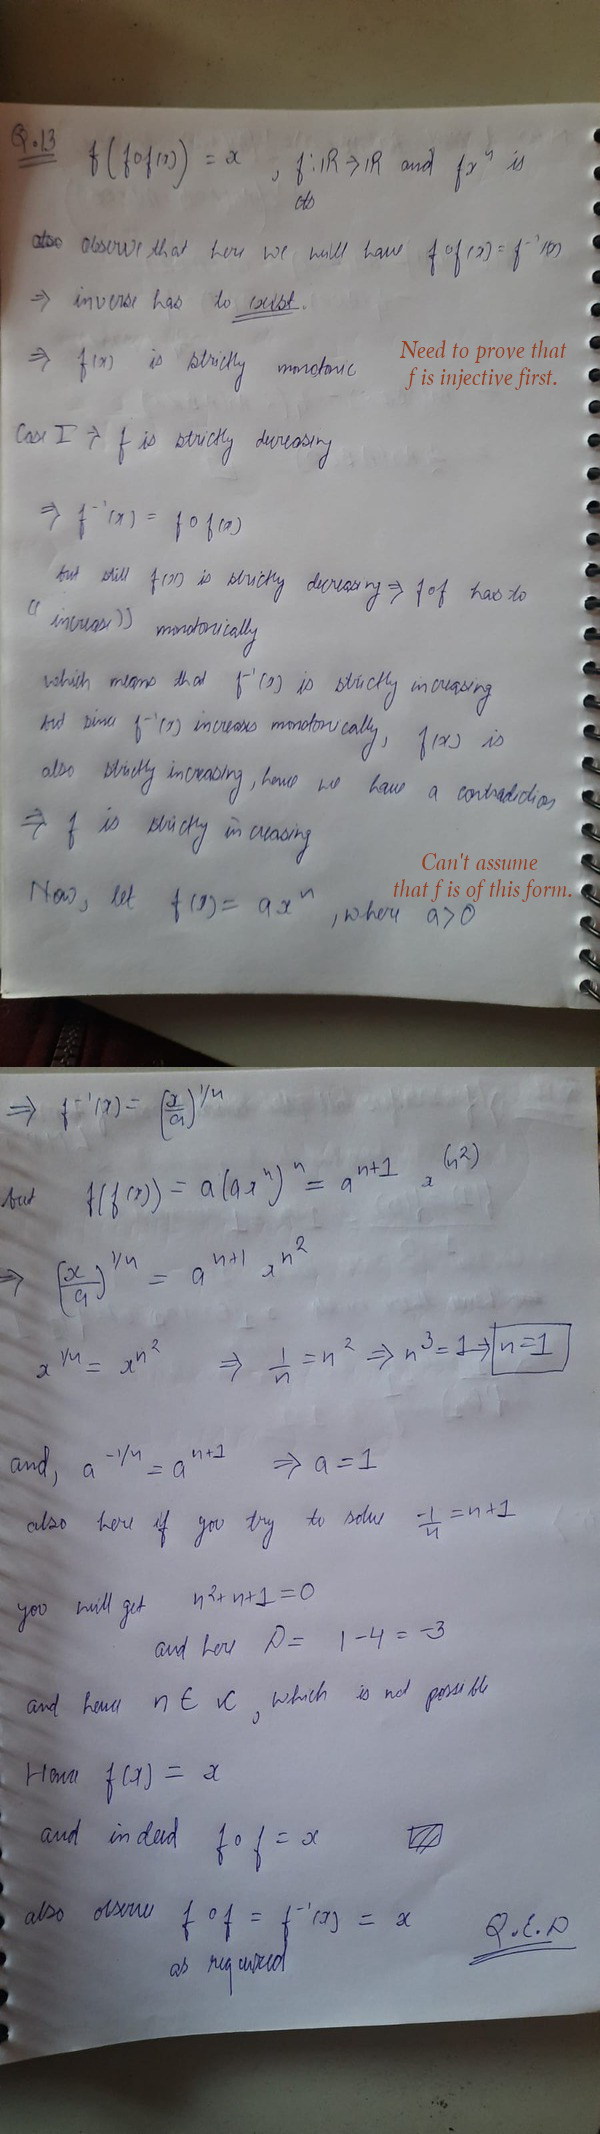 Q.13 f(fof(x)) = x , f:IR→IR and fx^n is
cts
also observe that here we will have fof(x) = f^-1(x)
⇒ inverse has to exist.
⇒ f(x) is strictly monotonic
Need to prove that
f is injective first.
Case I → f is strictly decreasing
⇒ f^-1(x) = fof(x)
but still f(x) is strictly decreasing ⇒ fof has to
"increase" monotonically
which means that f^-1(x) is strictly increasing
but since f^-1(x) increases monotonically, f(x) is
also strictly increasing, hence we have a contradiction
⇒ f is strictly increasing
Can't assume
that f is of this form.
Now, let f(x) = ax^n, where a>0
⇒ f^-1(x) = (x/a)^1/n
but f(f(x)) = a(ax^n)^n = a^n+1 x^(n^2)
⇒ (x/a)^1/n = a^n+1 x^n^2
x^1/n = x^n^2 ⇒ 1/n = n^2 ⇒ n^3 = 1 → n = 1
and, a^-1/n = a^n+1 ⇒ a = 1
also here if you try to solve -1/n = n+1
you will get n^2+n+1=0
and here D = 1-4 = -3
and hence n ∈ C, which is not possible
Hence f(x) = x
and indeed fof = x
also observe fof = f^-1(x) = x
as required
Q.E.D